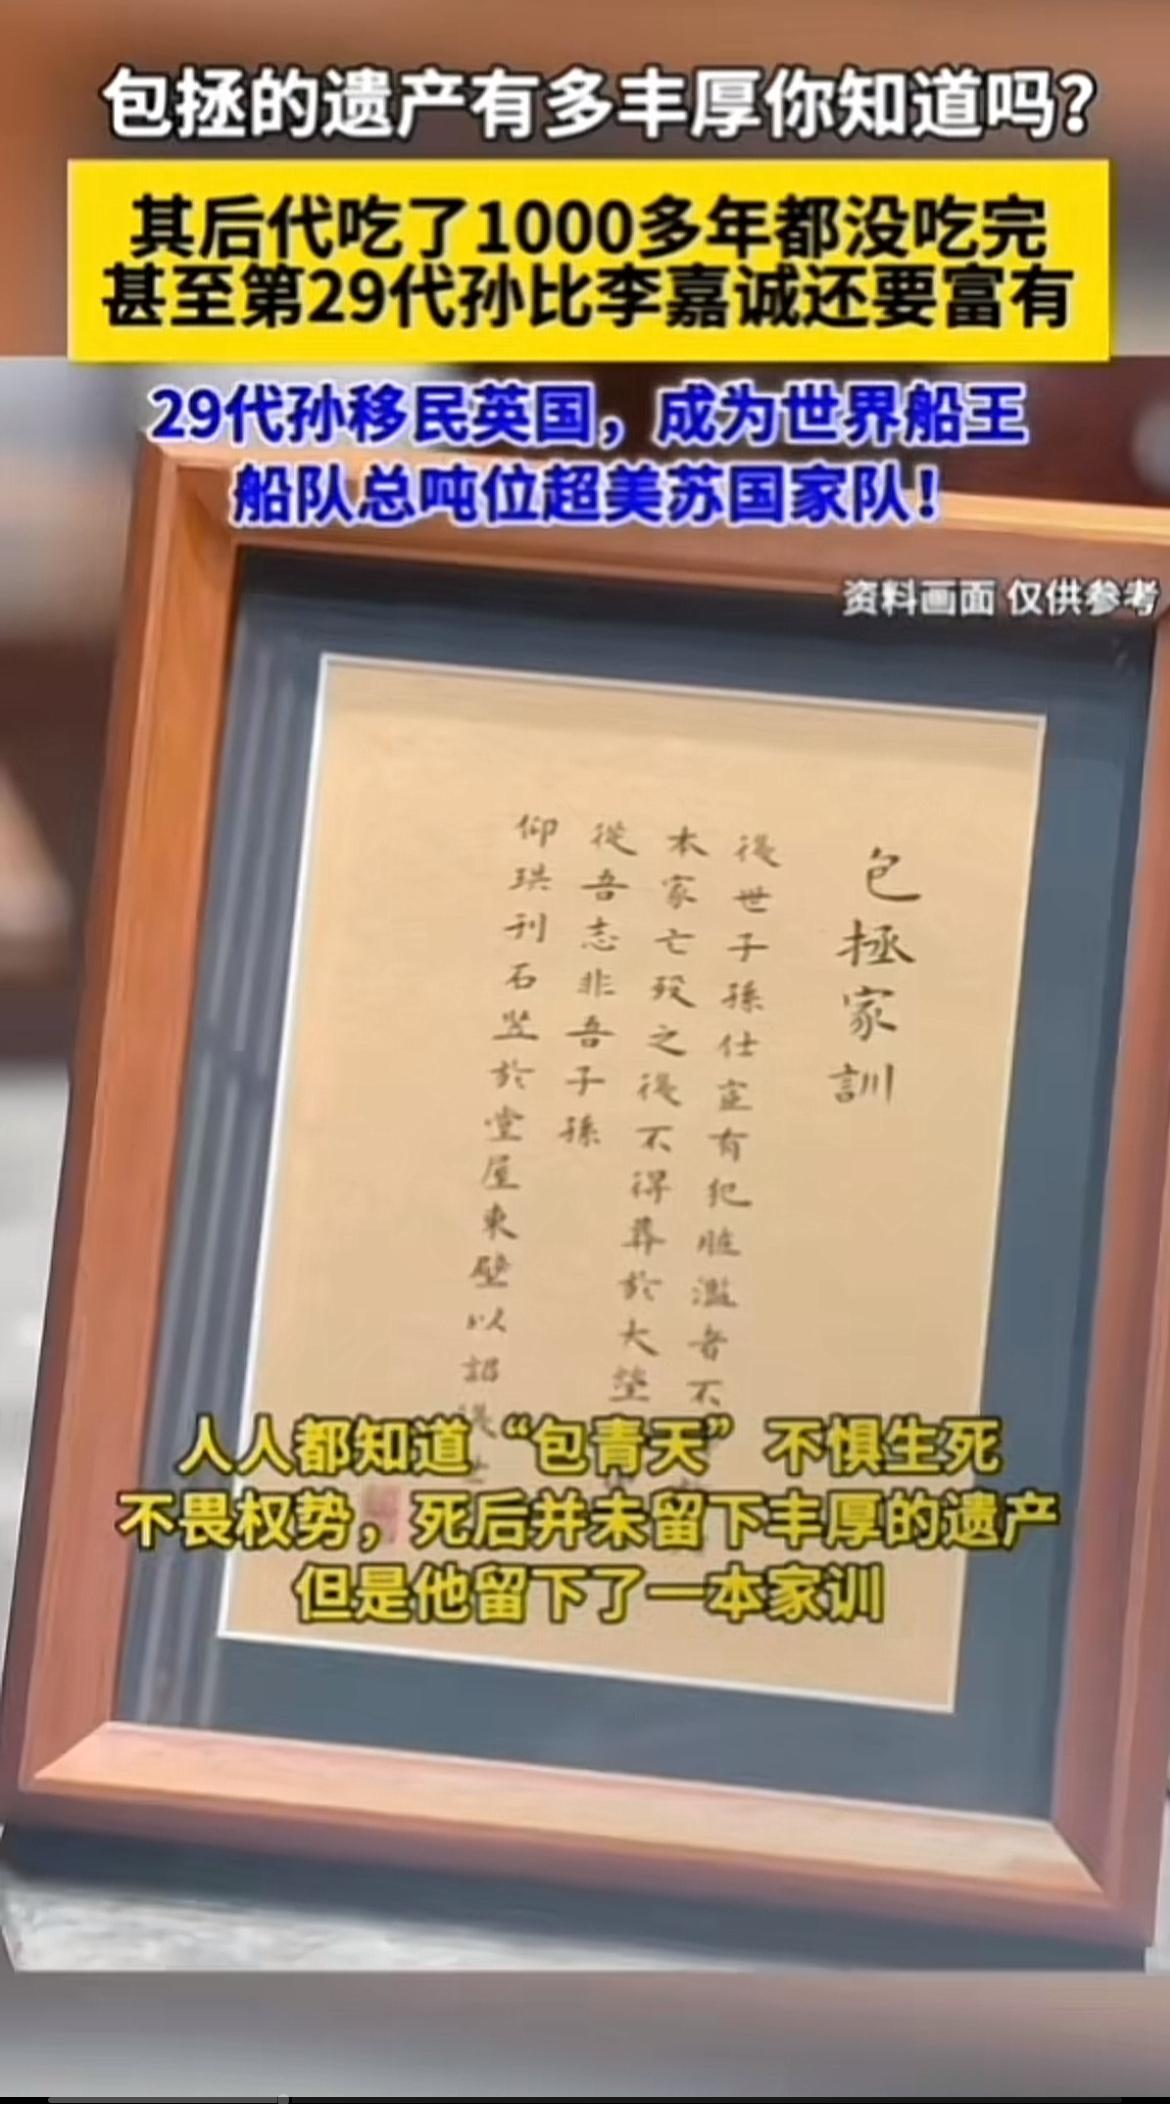 包拯的遗产有多丰厚你知道吗?
其后代吃了1000多年都没吃完
甚至第29代孙比李嘉诚还要富有
29代孙移民英国，成为世界船王
船队总吨位超美苏国家队！
资料画面 仅供参考
包拯家訓
後世子孫仕宦有犯賍濫者不
本家亡歿之後不得葬於大塋
從吾志非吾子孫
仰珙刊石竪於堂屋東壁以詔後世
人人都知道“包青天”不惧生死
不畏权势，死后并未留下丰厚的遗产
但是他留下了一本家训